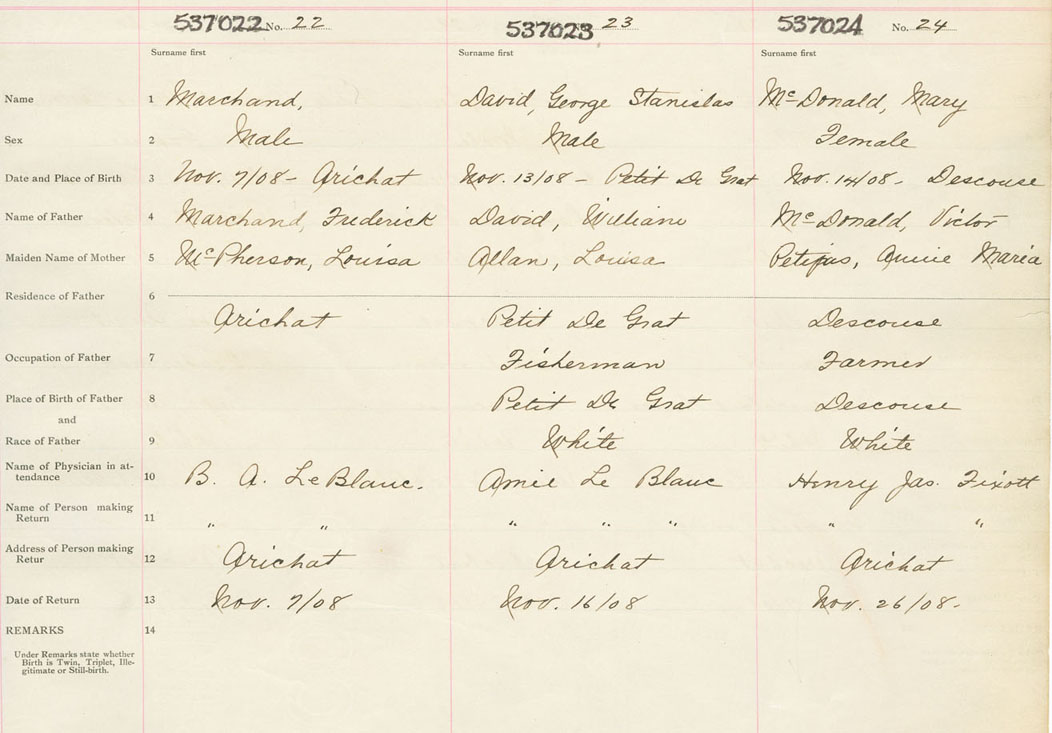 537022 No. 22 537023 23 537024 No. 24
Surname first Surname first Surname first
Name 1 Marchand, David, George Stanislas McDonald, Mary
Sex 2 Male Male Female
Date and Place of Birth 3 Nov. 7/08 - Arichat Nov. 13/08 - Petit De Grat Nov. 14/08 - Descouse
Name of Father 4 Marchand, Frederick David, William McDonald, Victor
Maiden Name of Mother 5 McPherson, Louisa Allan, Louisa Petipas, Annie Maria
Residence of Father 6
Arichat Petit De Grat Descouse
Occupation of Father 7 Fisherman Farmer
Place of Birth of Father 8 Petit De Grat Descouse
and
Race of Father 9 White White
Name of Physician in at-
tendance 10 B. A. LeBlanc. Amie Le Blanc Henry Jas. Fixott
Name of Person making
Return 11 " " " " " " "
Address of Person making
Retur 12 Arichat Arichat Arichat
Date of Return 13 Nov. 7/08 Nov. 16/08 Nov. 26/08-
REMARKS 14
Under Remarks state whether
Birth is Twin, Triplet, Ille-
gitimate or Still-birth.